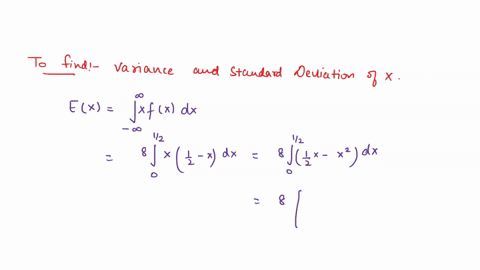 To find:- Variance and Standard Deviation of x.
E(x) = ∫_{-∞}^{∞} x f(x) dx
= 8 ∫_0^{1/2} x (1/2 - x) dx = 8 ∫_0^{1/2} (1/2 x - x²) dx
= 8 [